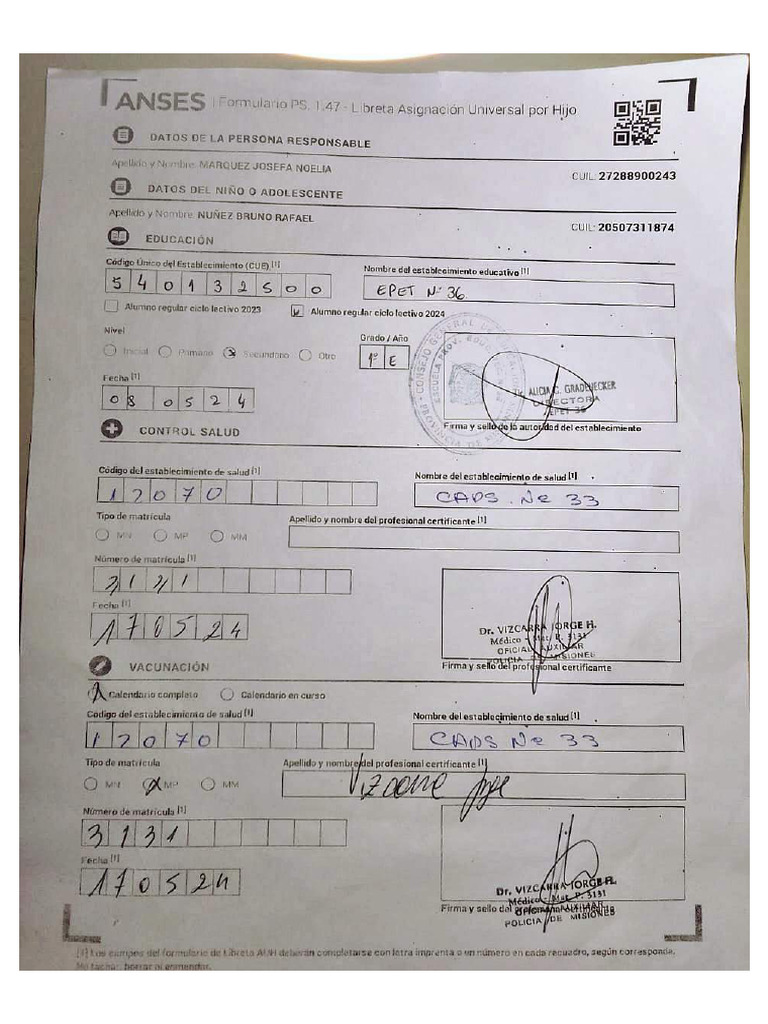 ANSES | Formulario PS. 1.47 - Libreta Asignación Universal por Hijo
DATOS DE LA PERSONA RESPONSABLE
Apellido y Nombre: MARQUEZ JOSEFA NOELIA
CUIL: 27288900243
DATOS DEL NIÑO O ADOLESCENTE
Apellido y Nombre: NUÑEZ BRUNO RAFAEL
CUIL: 20507311874
EDUCACIÓN
Código Único del Establecimiento (CUE) [1]
Nombre del establecimiento educativo [1]
540132500
EPET Nº 36
Alumno regular ciclo lectivo 2023
Alumno regular ciclo lectivo 2024
Nivel
Grado / Año
Inicial Primario Secundario Otro
1º E
Fecha [1]
08 05 24
CONSEJO GENERAL DE
PROVINCIA DE
ALICIA C. GRADENECKER
DIRECTORA
EPET 36
Firma y sello de la autoridad del establecimiento
CONTROL SALUD
Código del establecimiento de salud [1]
Nombre del establecimiento de salud [1]
12070
CAPS Nº 33
Tipo de matrícula
Apellido y nombre del profesional certificante [1]
MN MP MM
Número de matrícula [1]
Fecha [1]
170524
Dr. VIZCARRA JORGE H.
Médico - Mat. P. 3131
OFICIAL AUXILIAR
POLICIA DE MISIONES
Firma y sello del profesional certificante
VACUNACIÓN
Calendario completo Calendario en curso
Código del establecimiento de salud [1]
Nombre del establecimiento de salud [1]
12070
CAPS Nº 33
Tipo de matrícula
Apellido y nombre del profesional certificante [1]
MN MP MM
Número de matrícula [1]
3131
Fecha [1]
170524
Dr. VIZCARRA JORGE H.
Médico - Mat. P. 3131
OFICIAL AUXILIAR
POLICIA DE MISIONES
Firma y sello del profesional certificante
[1] Los campos del formulario de Libreta AUH deberán completarse con letra imprenta o un número en cada recuadro, según corresponda.
No tachar, borrar ni enmendar.